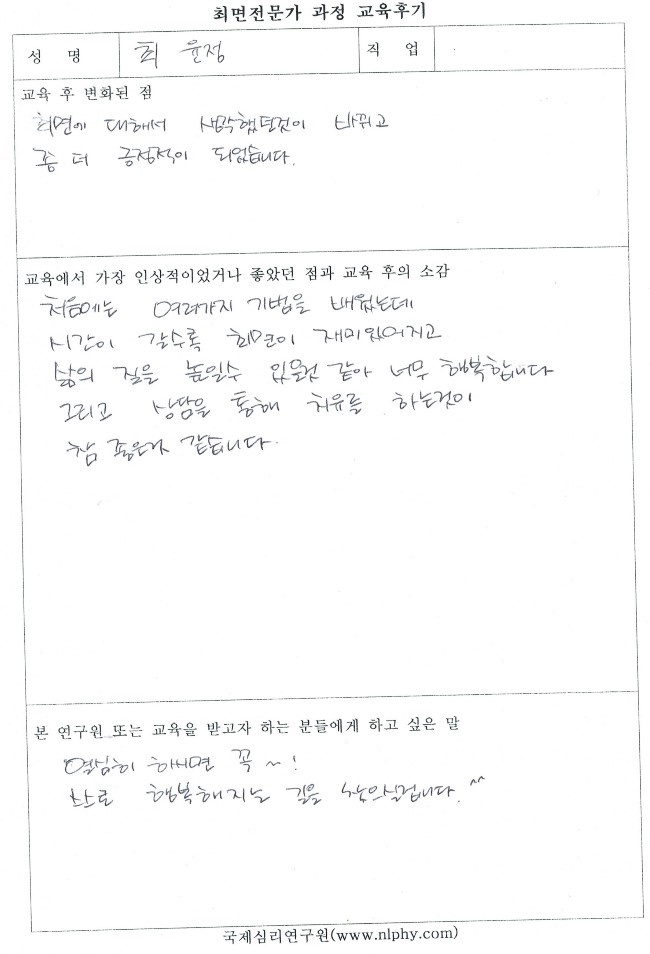 최면전문가 과정 교육후기
성 명 최 윤정 직 업
교육 후 변화된 점
최면에 대해서 생각했던것이 바뀌고
좀 더 긍정적이 되었습니다.
교육에서 가장 인상적이었거나 좋았던 점과 교육 후의 소감
처음에는 여러가지 기법을 배웠는데
시간이 갈수록 최면이 재미있어지고
삶의 질을 높일수 있을것 같아 너무 행복합니다
그리고 상담을 통해 치유를 하는것이
참 좋은거 같습니다.
본 연구원 또는 교육을 받고자 하는 분들에게 하고 싶은 말
열심히 하시면 꼭 ~ !
행복해지는 길을 찾으실겁니다. ^^
국제심리연구원(www.nlphy.com)